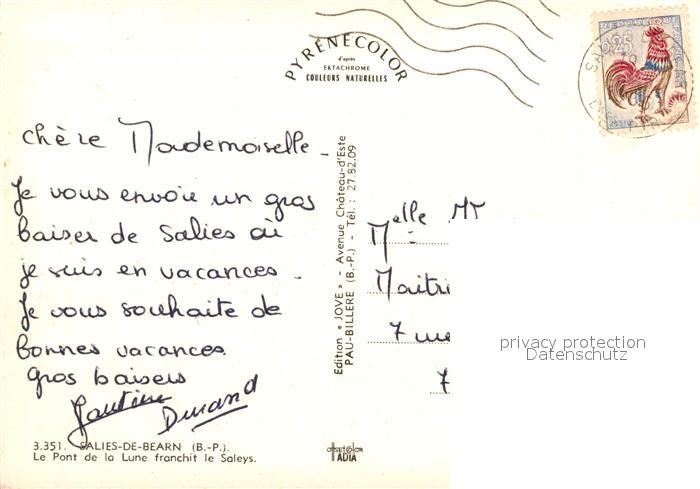 PYRÉNÉCOLOR
d'après
EKTACHROME
COULEURS NATURELLES
REPUBLIQUE
0,25
chère Mademoiselle -
Je vous envoie un gros
baiser de Salies où
je suis en vacances -
Je vous souhaite de
bonnes vacances
gros baisers
Durand
Edition « JOVE » - Avenue Château-d'Este
PAU-BILLERE (B.-P.) - Tél. : 27.82.09
Melle
Maitri
7 rue
7
privacy protection
Datenschutz
3.351. SALIES-DE-BEARN (B.-P.).
Le Pont de la Lune franchit le Saleys.
IADIA